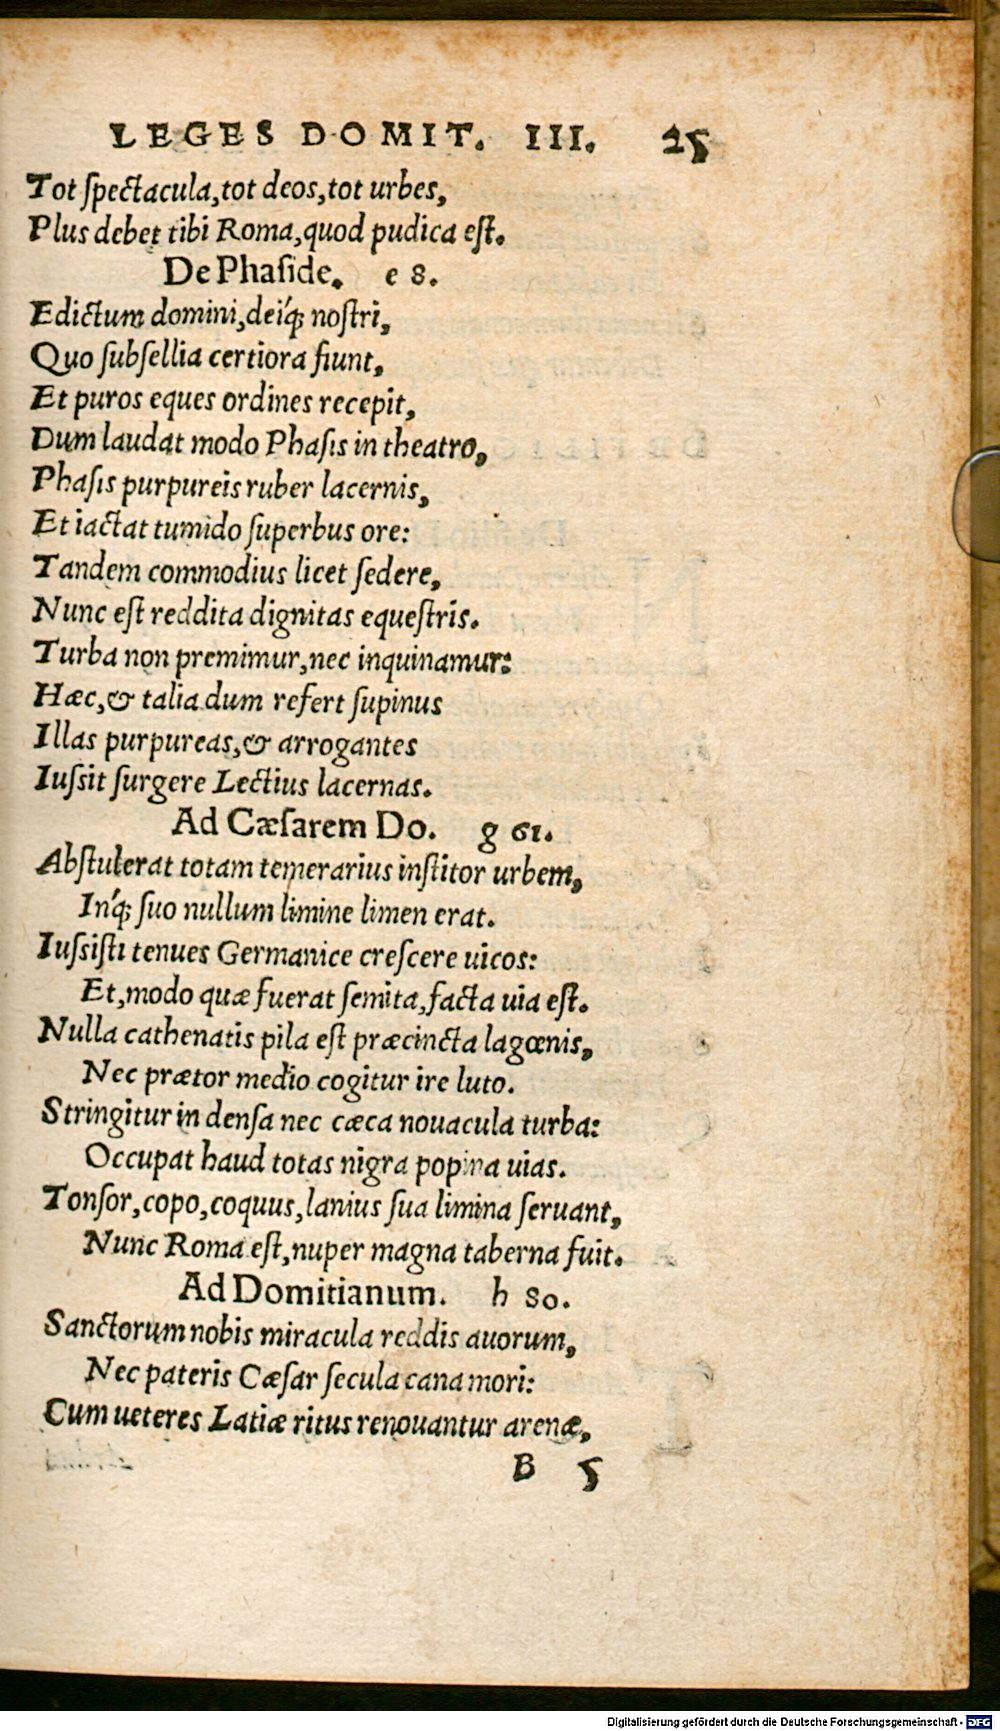 LEGES DOMIT. III. 25
Tot spectacula, tot deos, tot urbes,
Plus debet tibi Roma, quod pudica est.
De Phaside. e 8.
Edictum domini, deiq́; nostri,
Quo subsellia certiora fiunt,
Et puros eques ordines recepit,
Dum laudat modo Phasis in theatro,
Phasis purpureis ruber lacernis,
Et iactat tumido superbus ore:
Tandem commodius licet sedere,
Nunc est reddita dignitas equestris.
Turba non premimur, nec inquinamur:
Hæc, & talia dum refert supinus
Illas purpureas, & arrogantes
Iussit surgere Lectius lacernas.
Ad Cæsarem Do. g 61.
Abstulerat totam temerarius institor urbem,
Inq́; suo nullum limine limen erat.
Iussisti tenues Germanice crescere uicos:
Et, modo quæ fuerat semita, facta uia est.
Nulla cathenatis pila est præcincta lagœnis,
Nec prætor medio cogitur ire luto.
Stringitur in densa nec cæca nouacula turba:
Occupat haud totas nigra popina uias.
Tonsor, copo, coquus, lanius sua limina seruant,
Nunc Roma est, nuper magna taberna fuit.
Ad Domitianum. h 80.
Sanctorum nobis miracula reddis auorum,
Nec pateris Cæsar secula cana mori:
Cum ueteres Latiæ ritus renouantur arenæ,
B 5
Digitalisierung gefördert durch die Deutsche Forschungsgemeinschaft - DFG